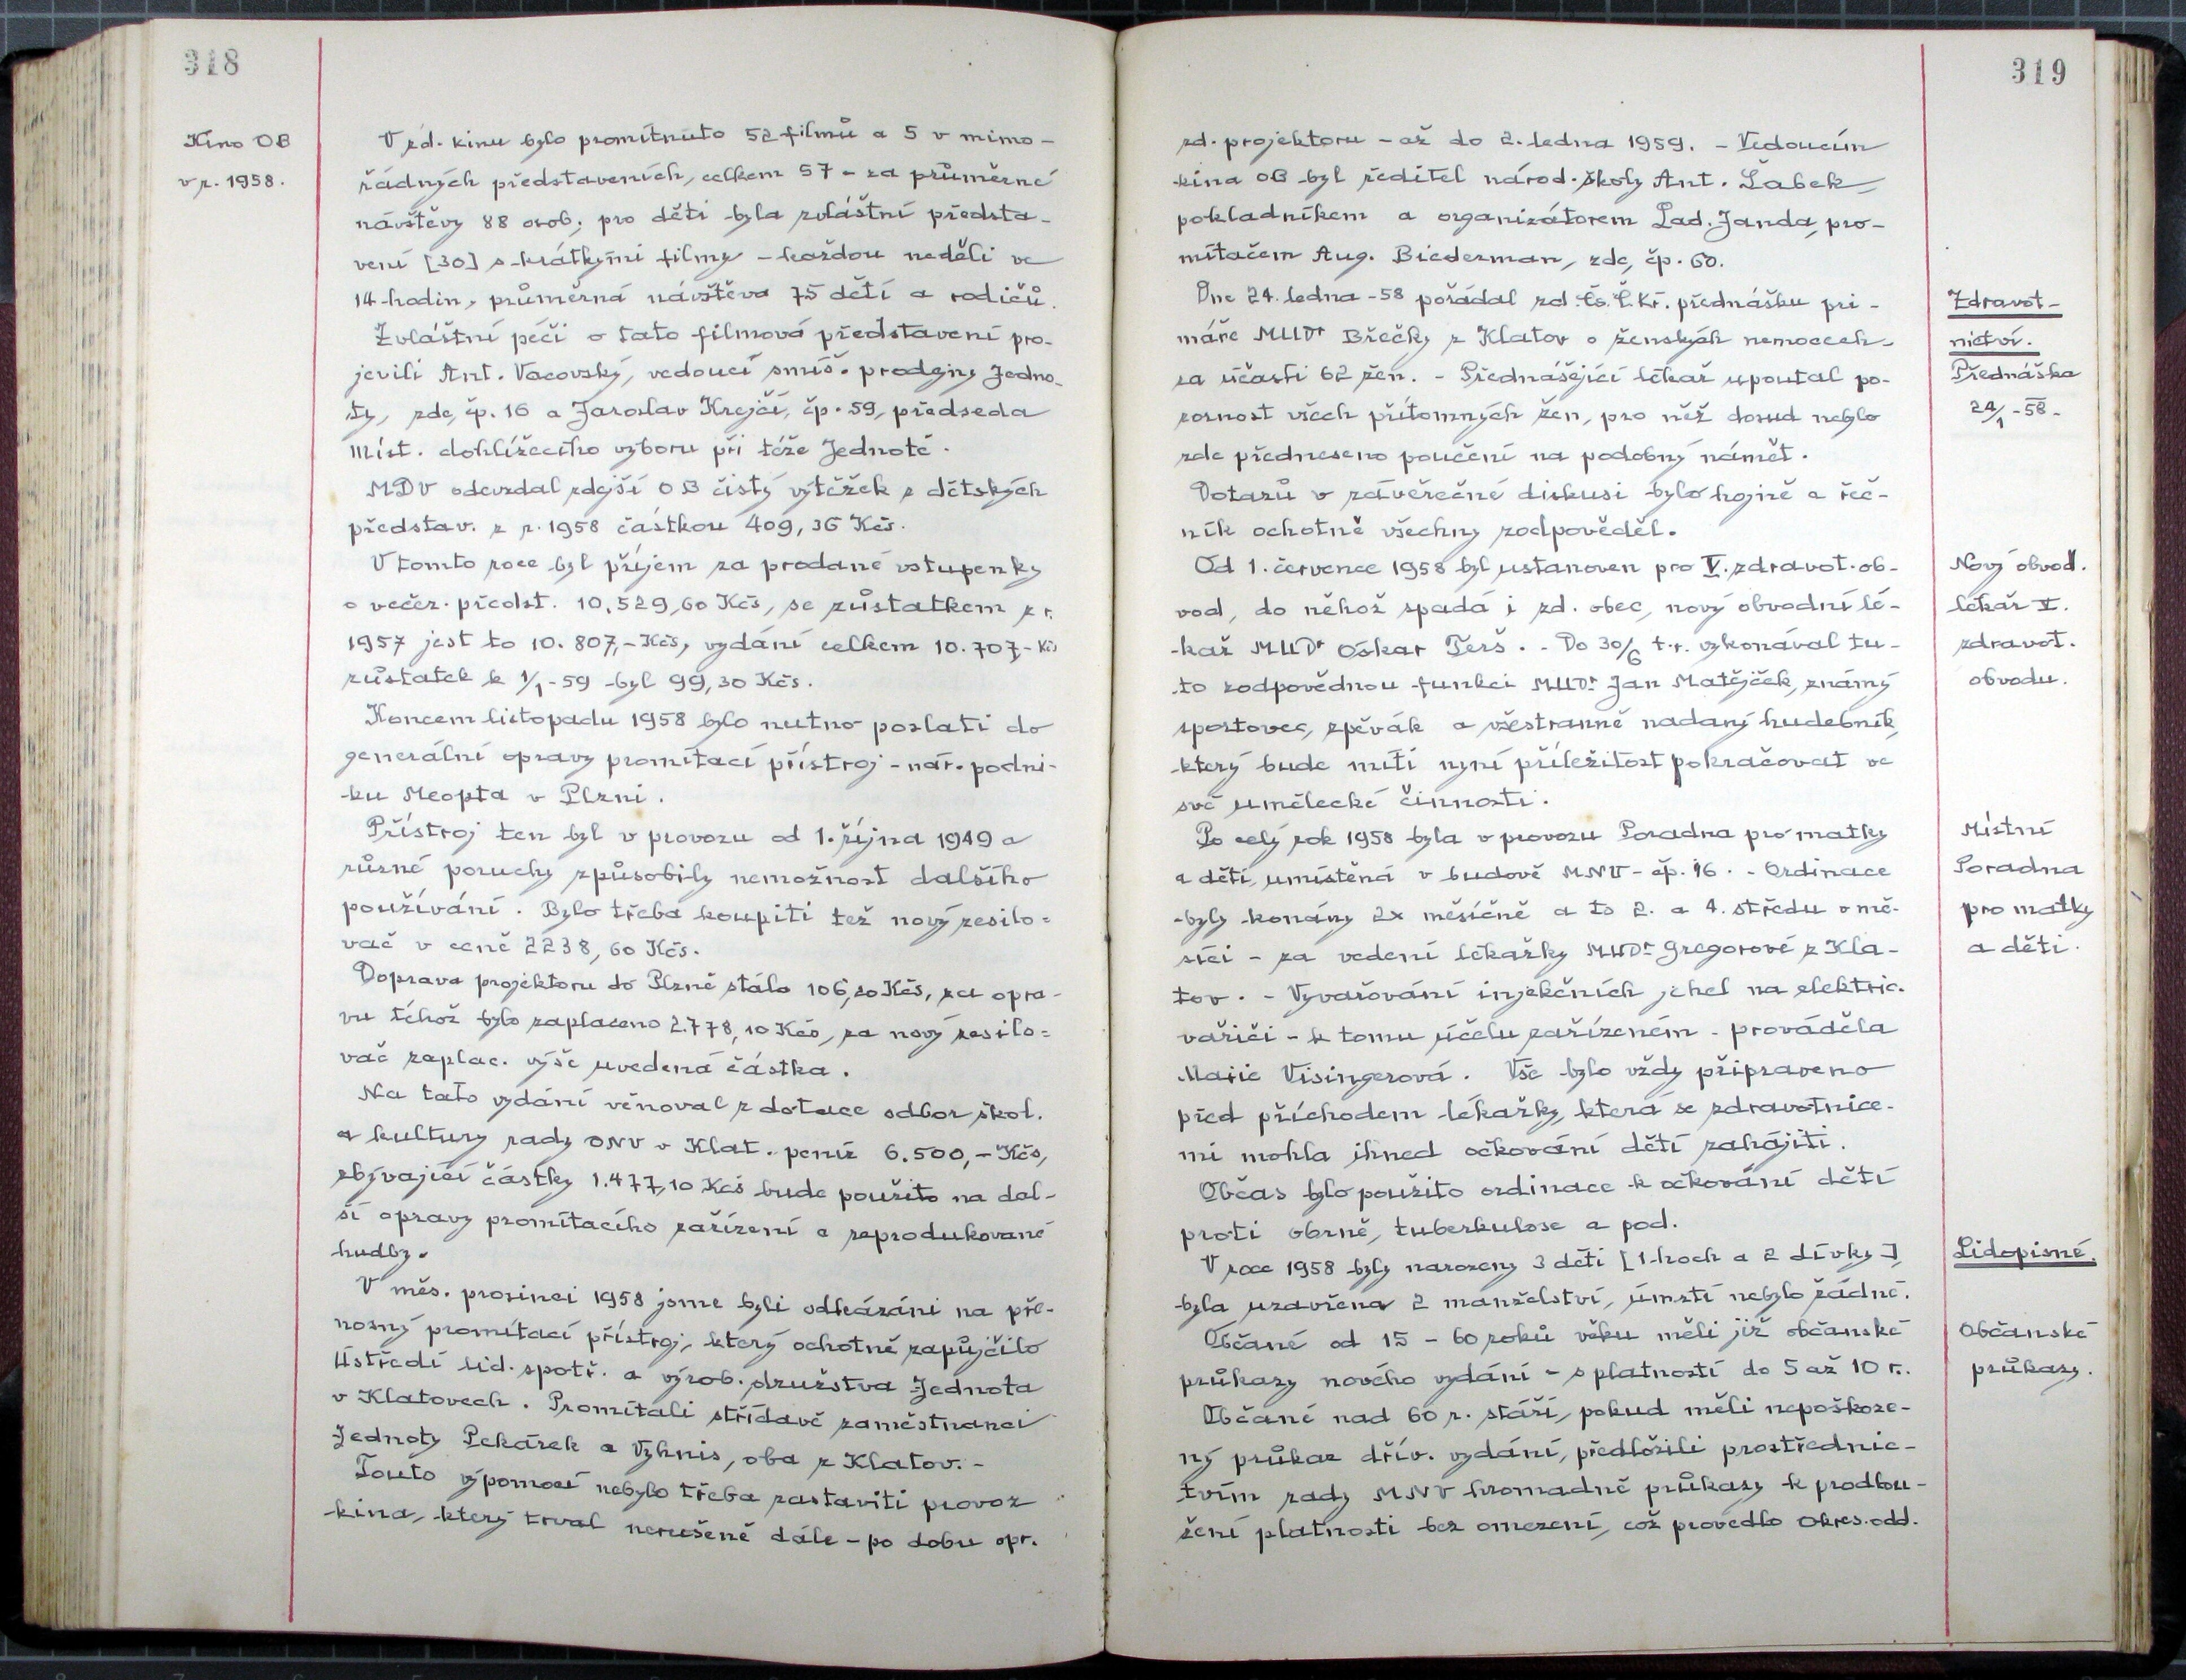 318
Kino OB
v r. 1958.
V zd. kinu bylo promítnuto 52 filmů a 5 v mimo-
řádných představeních, celkem 57 - za průměrné
návštěvy 88 osob; pro děti byla zvláštní předsta-
vení [30] s krátkými filmy - každou neděli ve
14 hodin, průměrná návštěva 75 dětí a rodičů.
Zvláštní péči o tato filmová představení pro-
jevili Ant. Vacovský, vedoucí smíš. prodejny Jedno-
ty, zde, čp. 16 a Jaroslav Krejčí, čp. 59, předseda
míst. dohlížecího výboru při téže Jednotě.
MDV odevzdal zdejší OB čistý výtěžek z dětských
představ. z r. 1958 částkou 409,36 Kčs.
V tomto roce byl příjem za prodané vstupenky
o večer. předst. 10.529,60 Kčs, se zůstatkem z r.
1957 jest to 10.807,- Kčs, vydání celkem 10.707,- Kčs
zůstatek k 1/1 - 59 byl 99,30 Kčs.
Koncem listopadu 1958 bylo nutno poslati do
generální opravy promítací přístroj - nár. podni-
ku Meopta v Plzni.
Přístroj ten byl v provozu od 1. října 1949 a
různé poruchy způsobily nemožnost dalšího
používání. Bylo třeba koupiti též nový zesilo=
vač v ceně 2238,60 Kčs.
Doprava projektoru do Plzně stála 106,20 Kčs, za opra-
vu téhož bylo zaplaceno 2.778,10 Kčs, za nový zesilo=
vač zaplac. výše uvedená částka.
Na tato vydání věnoval z dotace odbor škol.
a kultury rady ONV v Klat. peníz 6.500,- Kčs,
zbývající částky 1.477,10 Kčs bude použito na dal-
ší opravy promítacího zařízení a reprodukované
hudby.
V měs. prosinci 1958 jsme byli odkázáni na pře-
nosný promítací přístroj, který ochotně zapůjčilo
Ústředí lid. spotř. a výrob. družstva Jednota
v Klatovech. Promítali střídavě zaměstnanci
Jednoty Pekárek a Vyhnis, oba z Klatov. -
Touto výpomocí nebylo třeba zastaviti provoz
kina, který trval nerušeně dále - po dobu opr.
319
zd. projektoru - až do 2. ledna 1959. - Vedoucím
kina OB byl ředitel národ. školy Ant. Šabek,
pokladníkem a organizátorem Lad. Janda, pro-
mítačem Aug. Biederman, zde, čp. 60.
Dne 24. ledna -58 pořádal zd. Čs. Č. Kř. přednášku pri-
máře MUDr Břečky z Klatov o ženských nemocech -
za účasti 62 žen. - Přednášející lékař upoutal po-
zornost všech přítomných žen, pro něž dosud nebylo
zde předneseno poučení na podobný námět.
Dotazů v závěrečné diskusi bylo hojně a řeč-
ník ochotně všechny zodpověděl.
Od 1. července 1958 byl ustanoven pro V. zdravot. ob-
vod, do něhož spadá i zd. obec, nový obvodní lé-
kař MUDr Oskar Terš. - Do 30/6 t.r. vykonával tu-
to zodpovědnou funkci MUDr Jan Matějček, známý
sportovec, zpěvák a všestranně nadaný hudebník,
který bude míti nyní příležitost pokračovat ve
své umělecké činnosti.
Po celý rok 1958 byla v provozu Poradna pro matky
a děti, umístěná v budově MNV - čp. 16. - Ordinace
byly konány 2x měsíčně a to 2. a 4. středu v mě-
síci - za vedení lékařky MUDr Gregorové z Kla-
tov. - Vyvařování injekčních jehel na elektric.
vařiči - k tomu účelu zařízeném - prováděla
Marie Visingerová. Vše bylo vždy připraveno
před příchodem lékařky, která se zdravotnice-
mi mohla ihned očkování dětí zahájiti.
Občas bylo použito ordinace k očkování dětí
proti obrně, tuberkulose a pod.
V roce 1958 byly narozeny 3 děti [1 hoch a 2 dívky],
byla uzavřena 2 manželství, úmrtí nebylo žádné.
Občané od 15 - 60 roků věku měli již občanské
průkazy nového vydání - s platností do 5 až 10 r..
Občané nad 60 r. stáří, pokud měli nepoškoze-
ný průkaz dřív. vydání, předložili prostřednic-
tvím rady MNV hromadně průkazy k prodlou-
žení platnosti bez omezení, což provedlo Okres. odd.
Zdravot-
nictví.
Přednáška
24/1 - 58 -
Nový obvod.
lékař V.
zdravot.
obvodu.
Místní
Poradna
pro matky
a děti.
Lidopisné.
Občanské
průkazy.